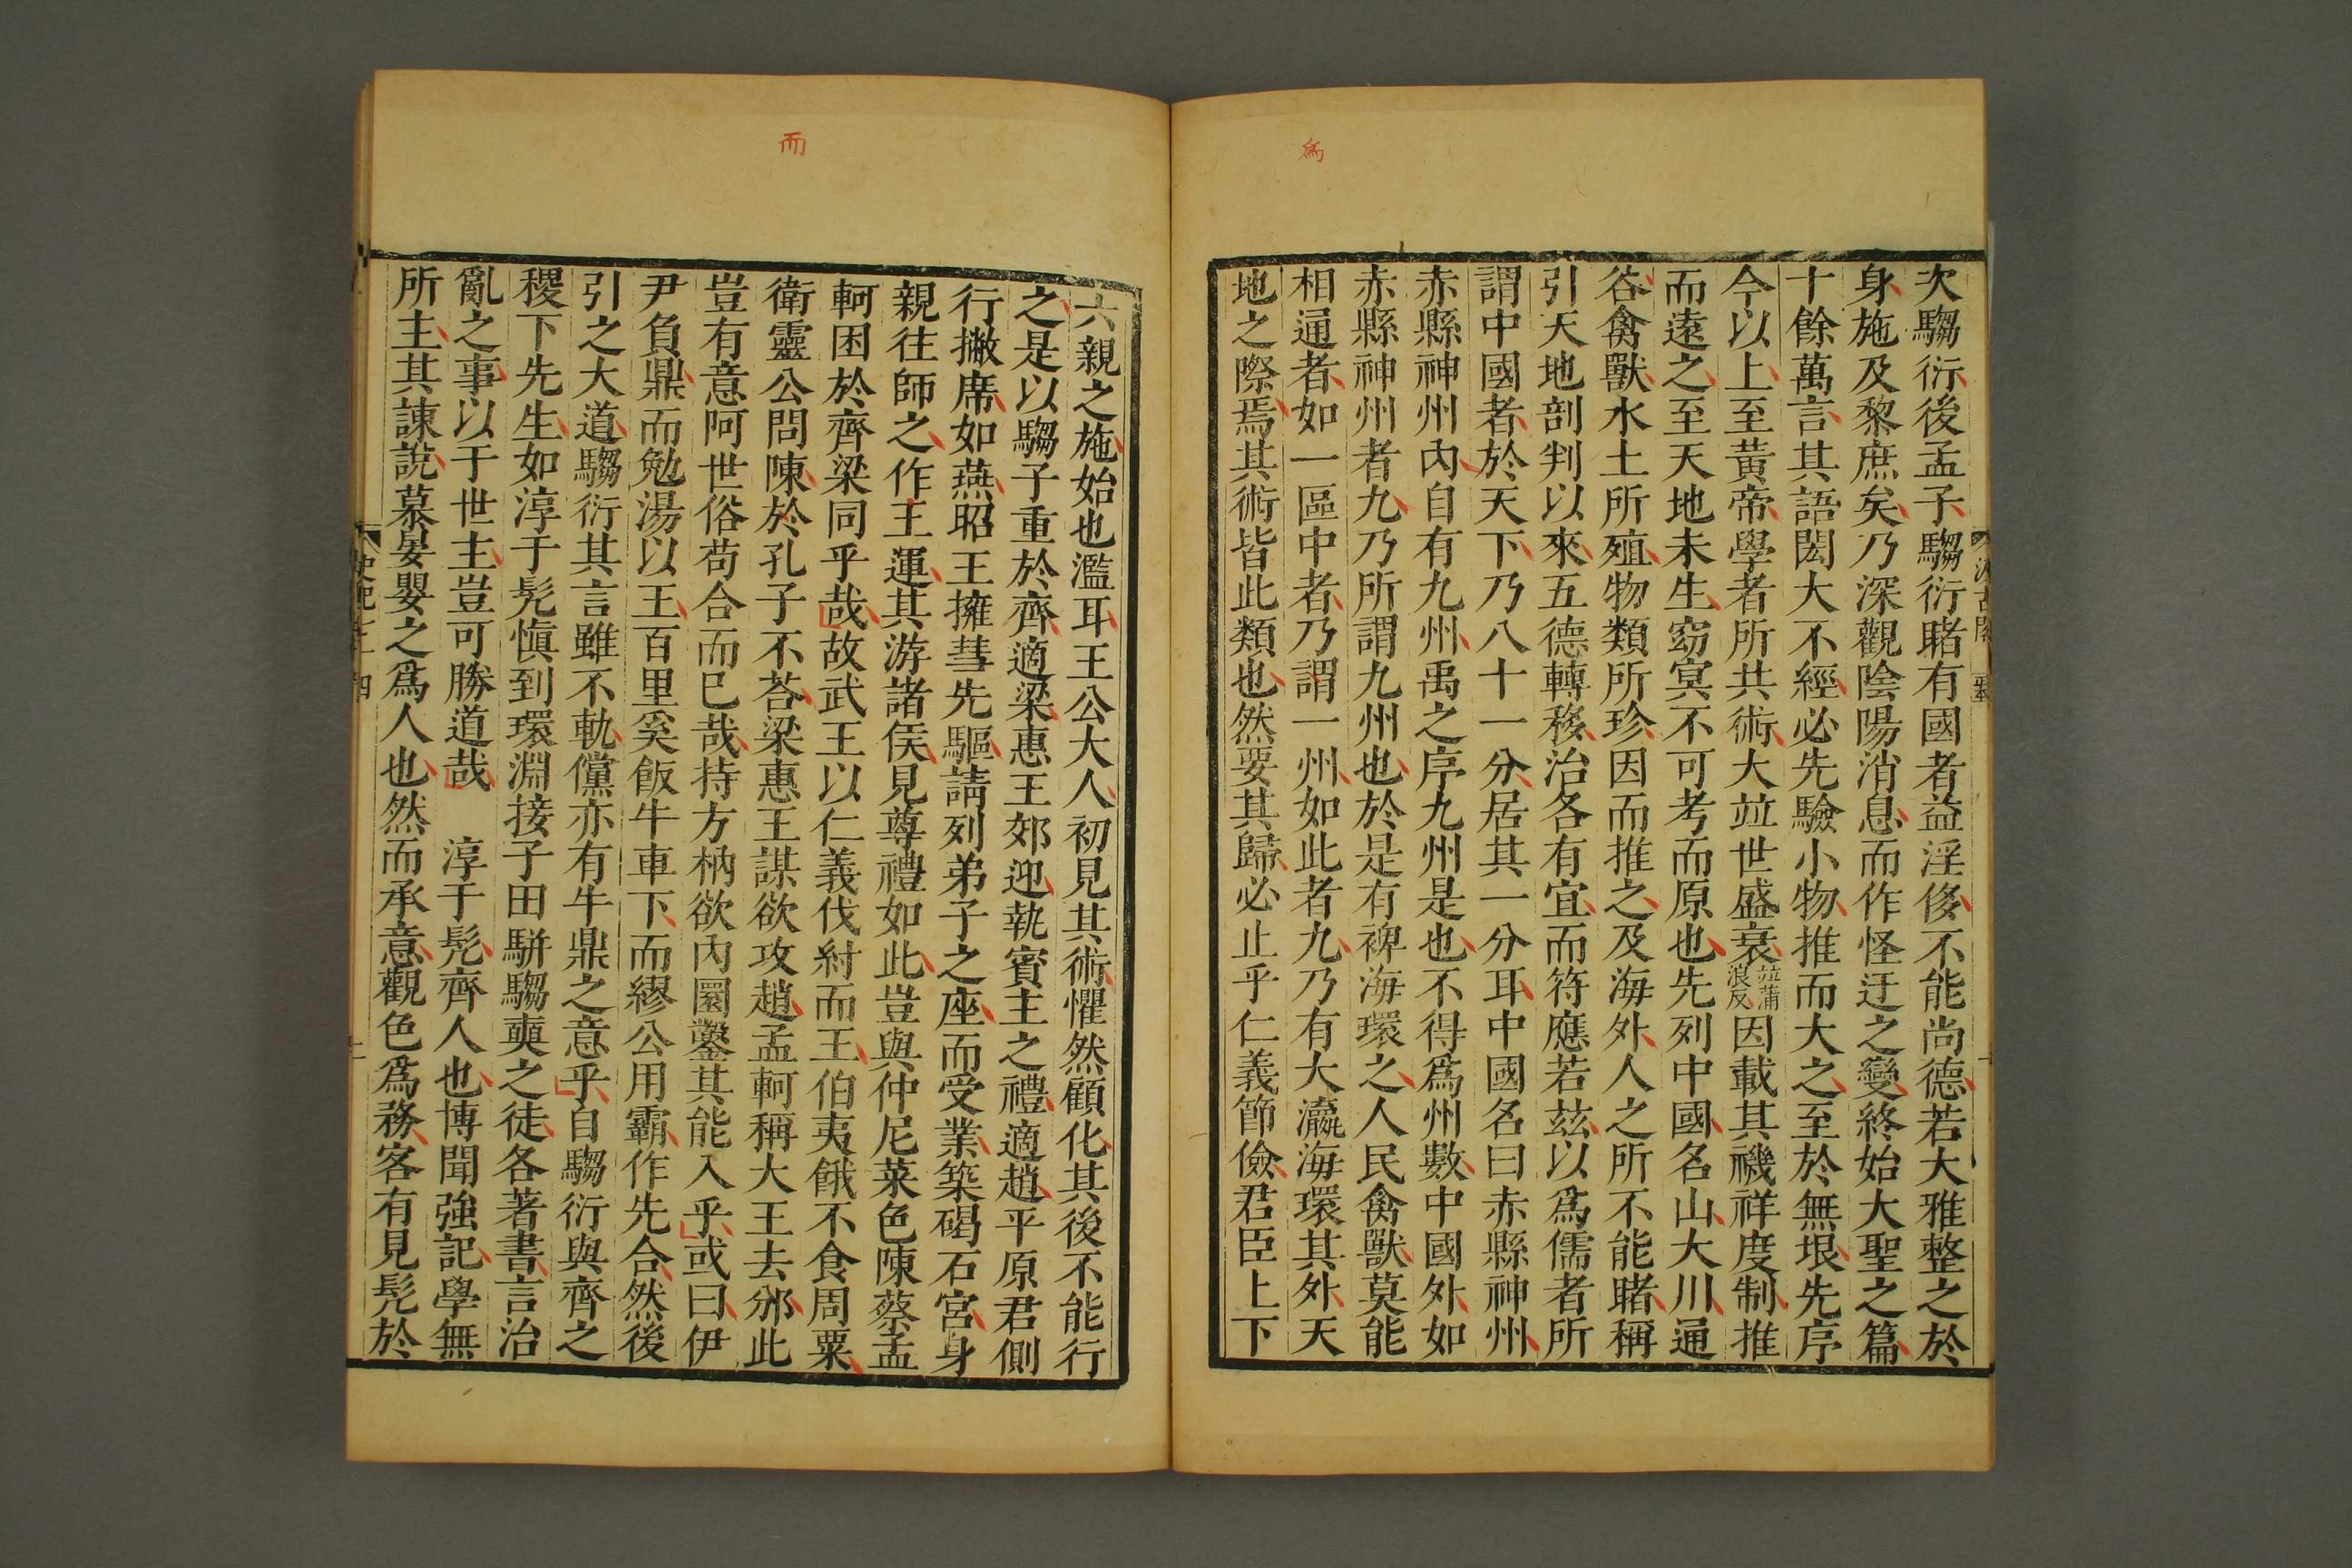 爲
次騶衍後孟子騶衍睹有國者益淫侈不能尚德若大雅整之於
身施及黎庶矣乃深觀陰陽消息而作怪迂之變終始大聖之篇
十餘萬言其語閎大不經必先驗小物推而大之至於無垠先序
今以上至黃帝學者所共術大竝世盛衰竝蒲浪反因載其禨祥度制推
而遠之至天地未生窈冥不可考而原也先列中國名山大川通
谷禽獸水土所殖物類所珍因而推之及海外人之所不能睹稱
引天地剖判以來五德轉移治各有宜而符應若茲以爲儒者所
謂中國者於天下乃八十一分居其一分耳中國名曰赤縣神州
赤縣神州內自有九州禹之序九州是也不得爲州數中國外如
赤縣神州者九乃所謂九州也於是有裨海環之人民禽獸莫能
相通者如一區中者乃謂一州如此者九乃有大瀛海環其外天
地之際焉其術皆此類也然要其歸必止乎仁義節儉君臣上下
而
六親之施始也濫耳王公大人初見其術懼然顧化其後不能行
之是以騶子重於齊適梁惠王郊迎執賓主之禮適趙平原君側
行撇席如燕昭王擁彗先驅請列弟子之座而受業築碣石宮身
親往師之作王運其游諸侯見尊禮如此豈與仲尼菜色陳蔡孟
軻困於齊梁同乎哉故武王以仁義伐紂而王伯夷餓不食周粟
衛靈公問陳於孔子不荅梁惠王謀欲攻趙孟軻稱大王去邠此
豈有意阿世俗苟合而已哉持方枘欲內圜鑿其能入乎或曰伊
尹負鼎而勉湯以王百里奚飯牛車下而繆公用霸作先合然後
引之大道騶衍其言雖不軌儻亦有牛鼎之意乎自騶衍與齊之
稷下先生如淳于髡愼到環淵接子田駢騶奭之徒各著書言治
亂之事以于世主豈可勝道哉 淳于髡齊人也博聞強記學無
所主其諫說慕晏嬰之爲人也然而承意觀色爲務客有見髡於